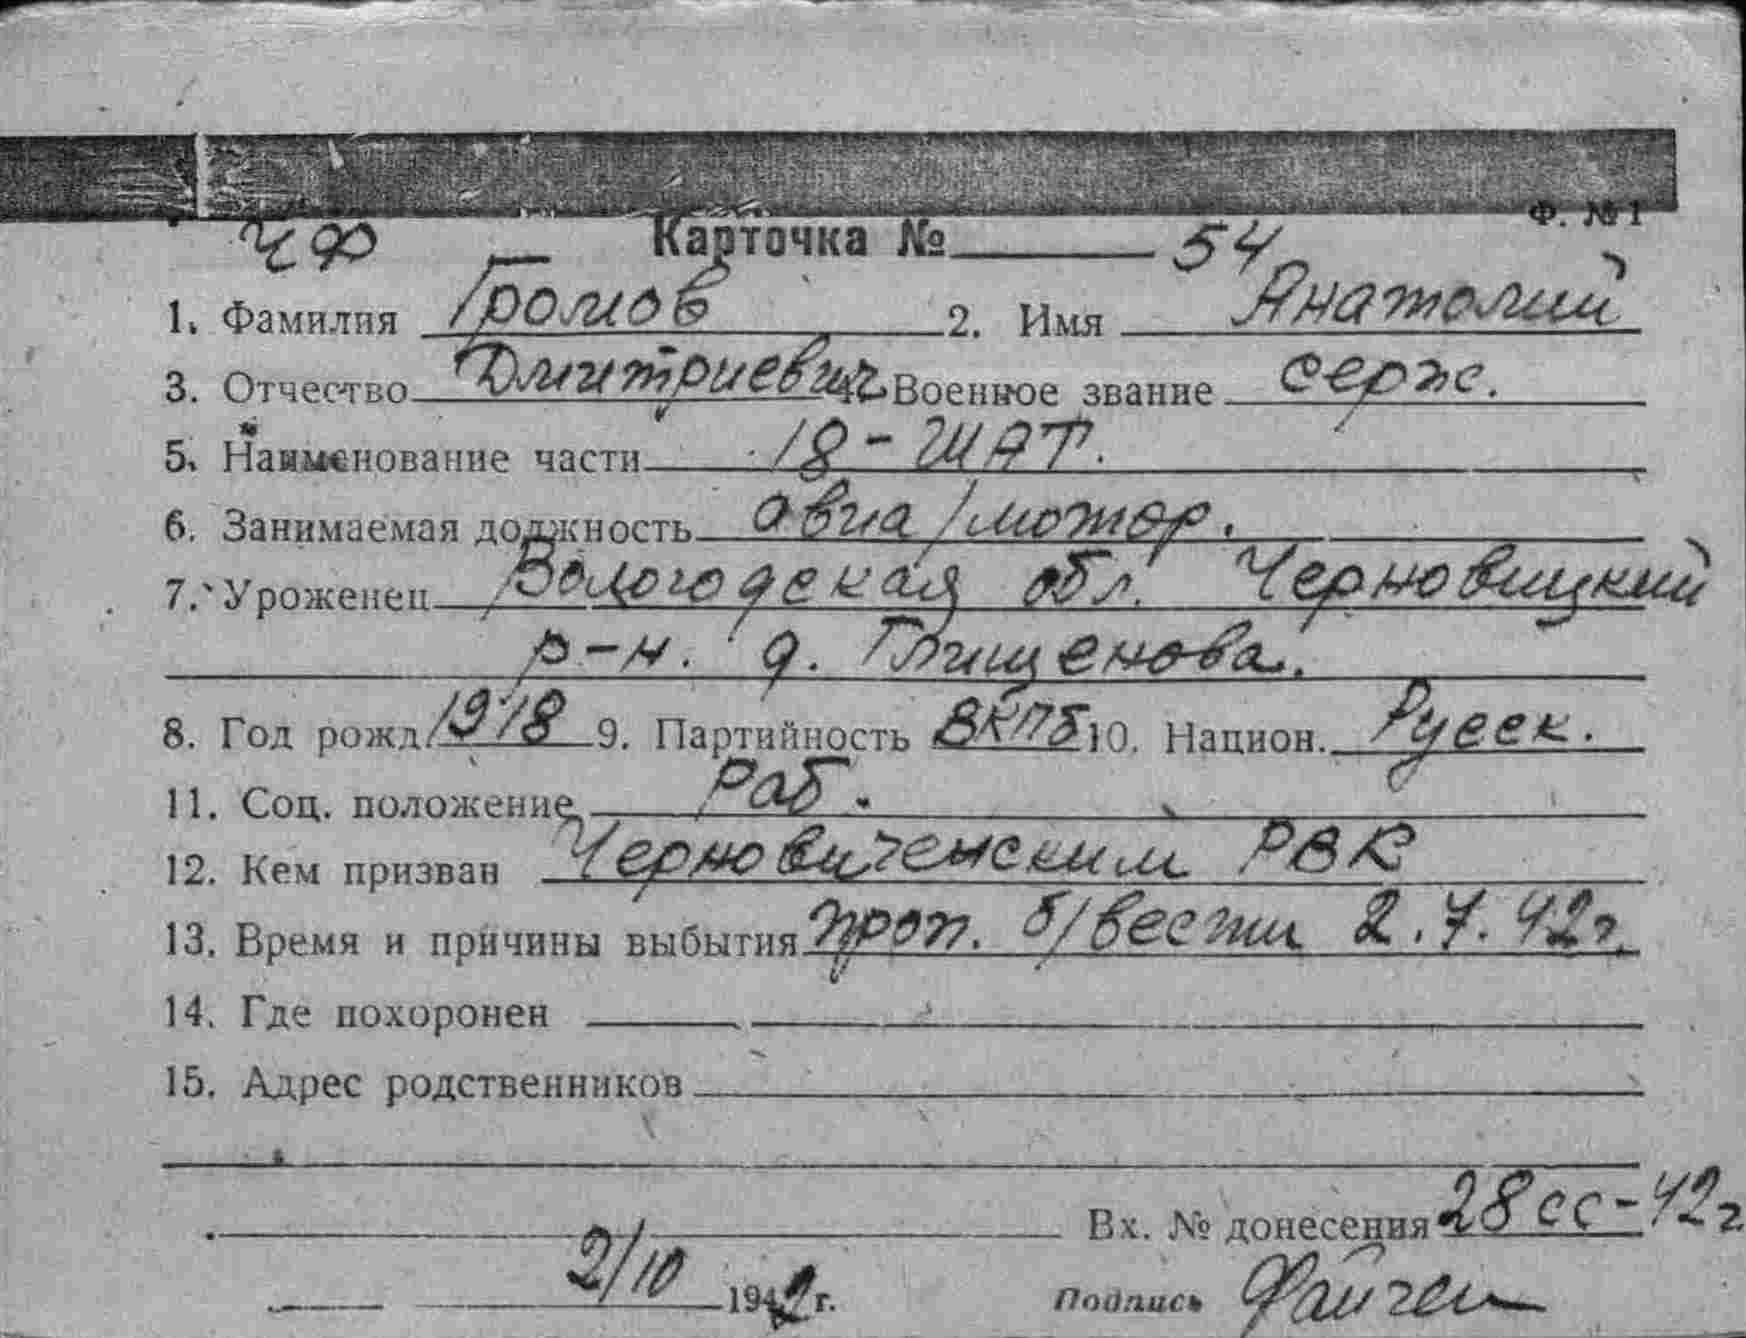 Ф. №1
ЧФ Карточка № 54
1. Фамилия Громов 2. Имя Анатолий
3. Отчество Дмитриевич 4. Военное звание серж.
5. Наименование части 18-ШАП.
6. Занимаемая должность авиа/мотор.
7. Уроженец Вологодская обл. Черновицкий
р-н. д. Глищенова.
8. Год рожд. 1918 9. Партийность ВКПб 10. Национ. Русск.
11. Соц. положение раб.
12. Кем призван Черновиченским РВК
13. Время и причины выбытия проп. б/вести 2.7.42г.
14. Где похоронен
15. Адрес родственников
Вх. № донесения 28сс-42г
2/10 1942 г. Подпись